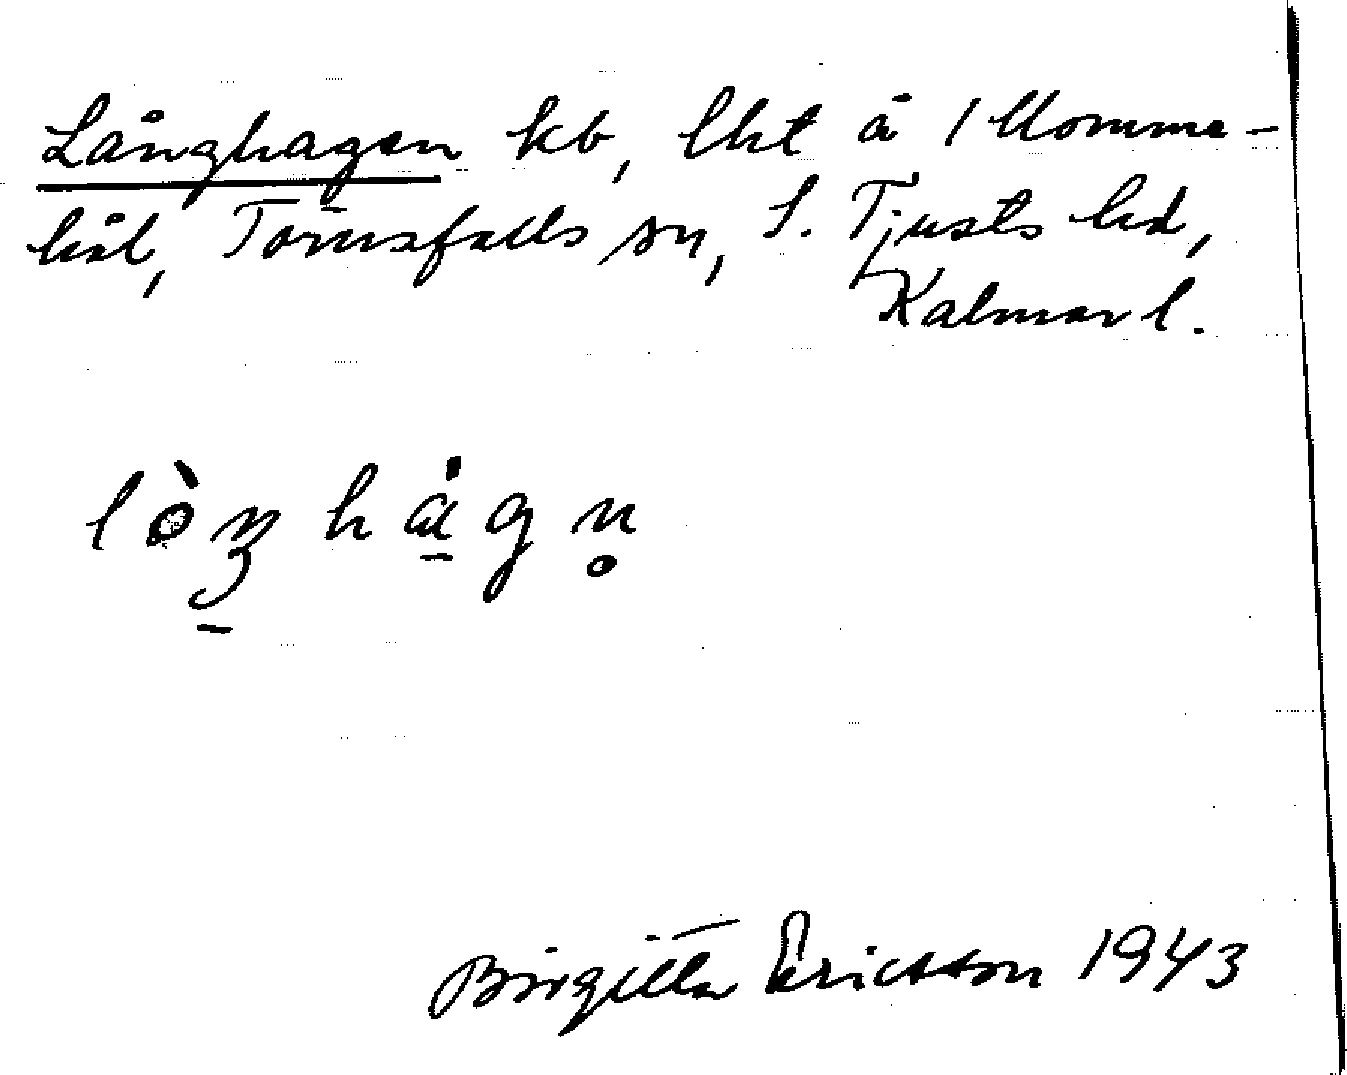 Långhagen kb, lht å 1 Momme-
hål, Törnsfalls sn, S. Tjusts hd,
Kalmar l.
Birgitta Ericsson 1943